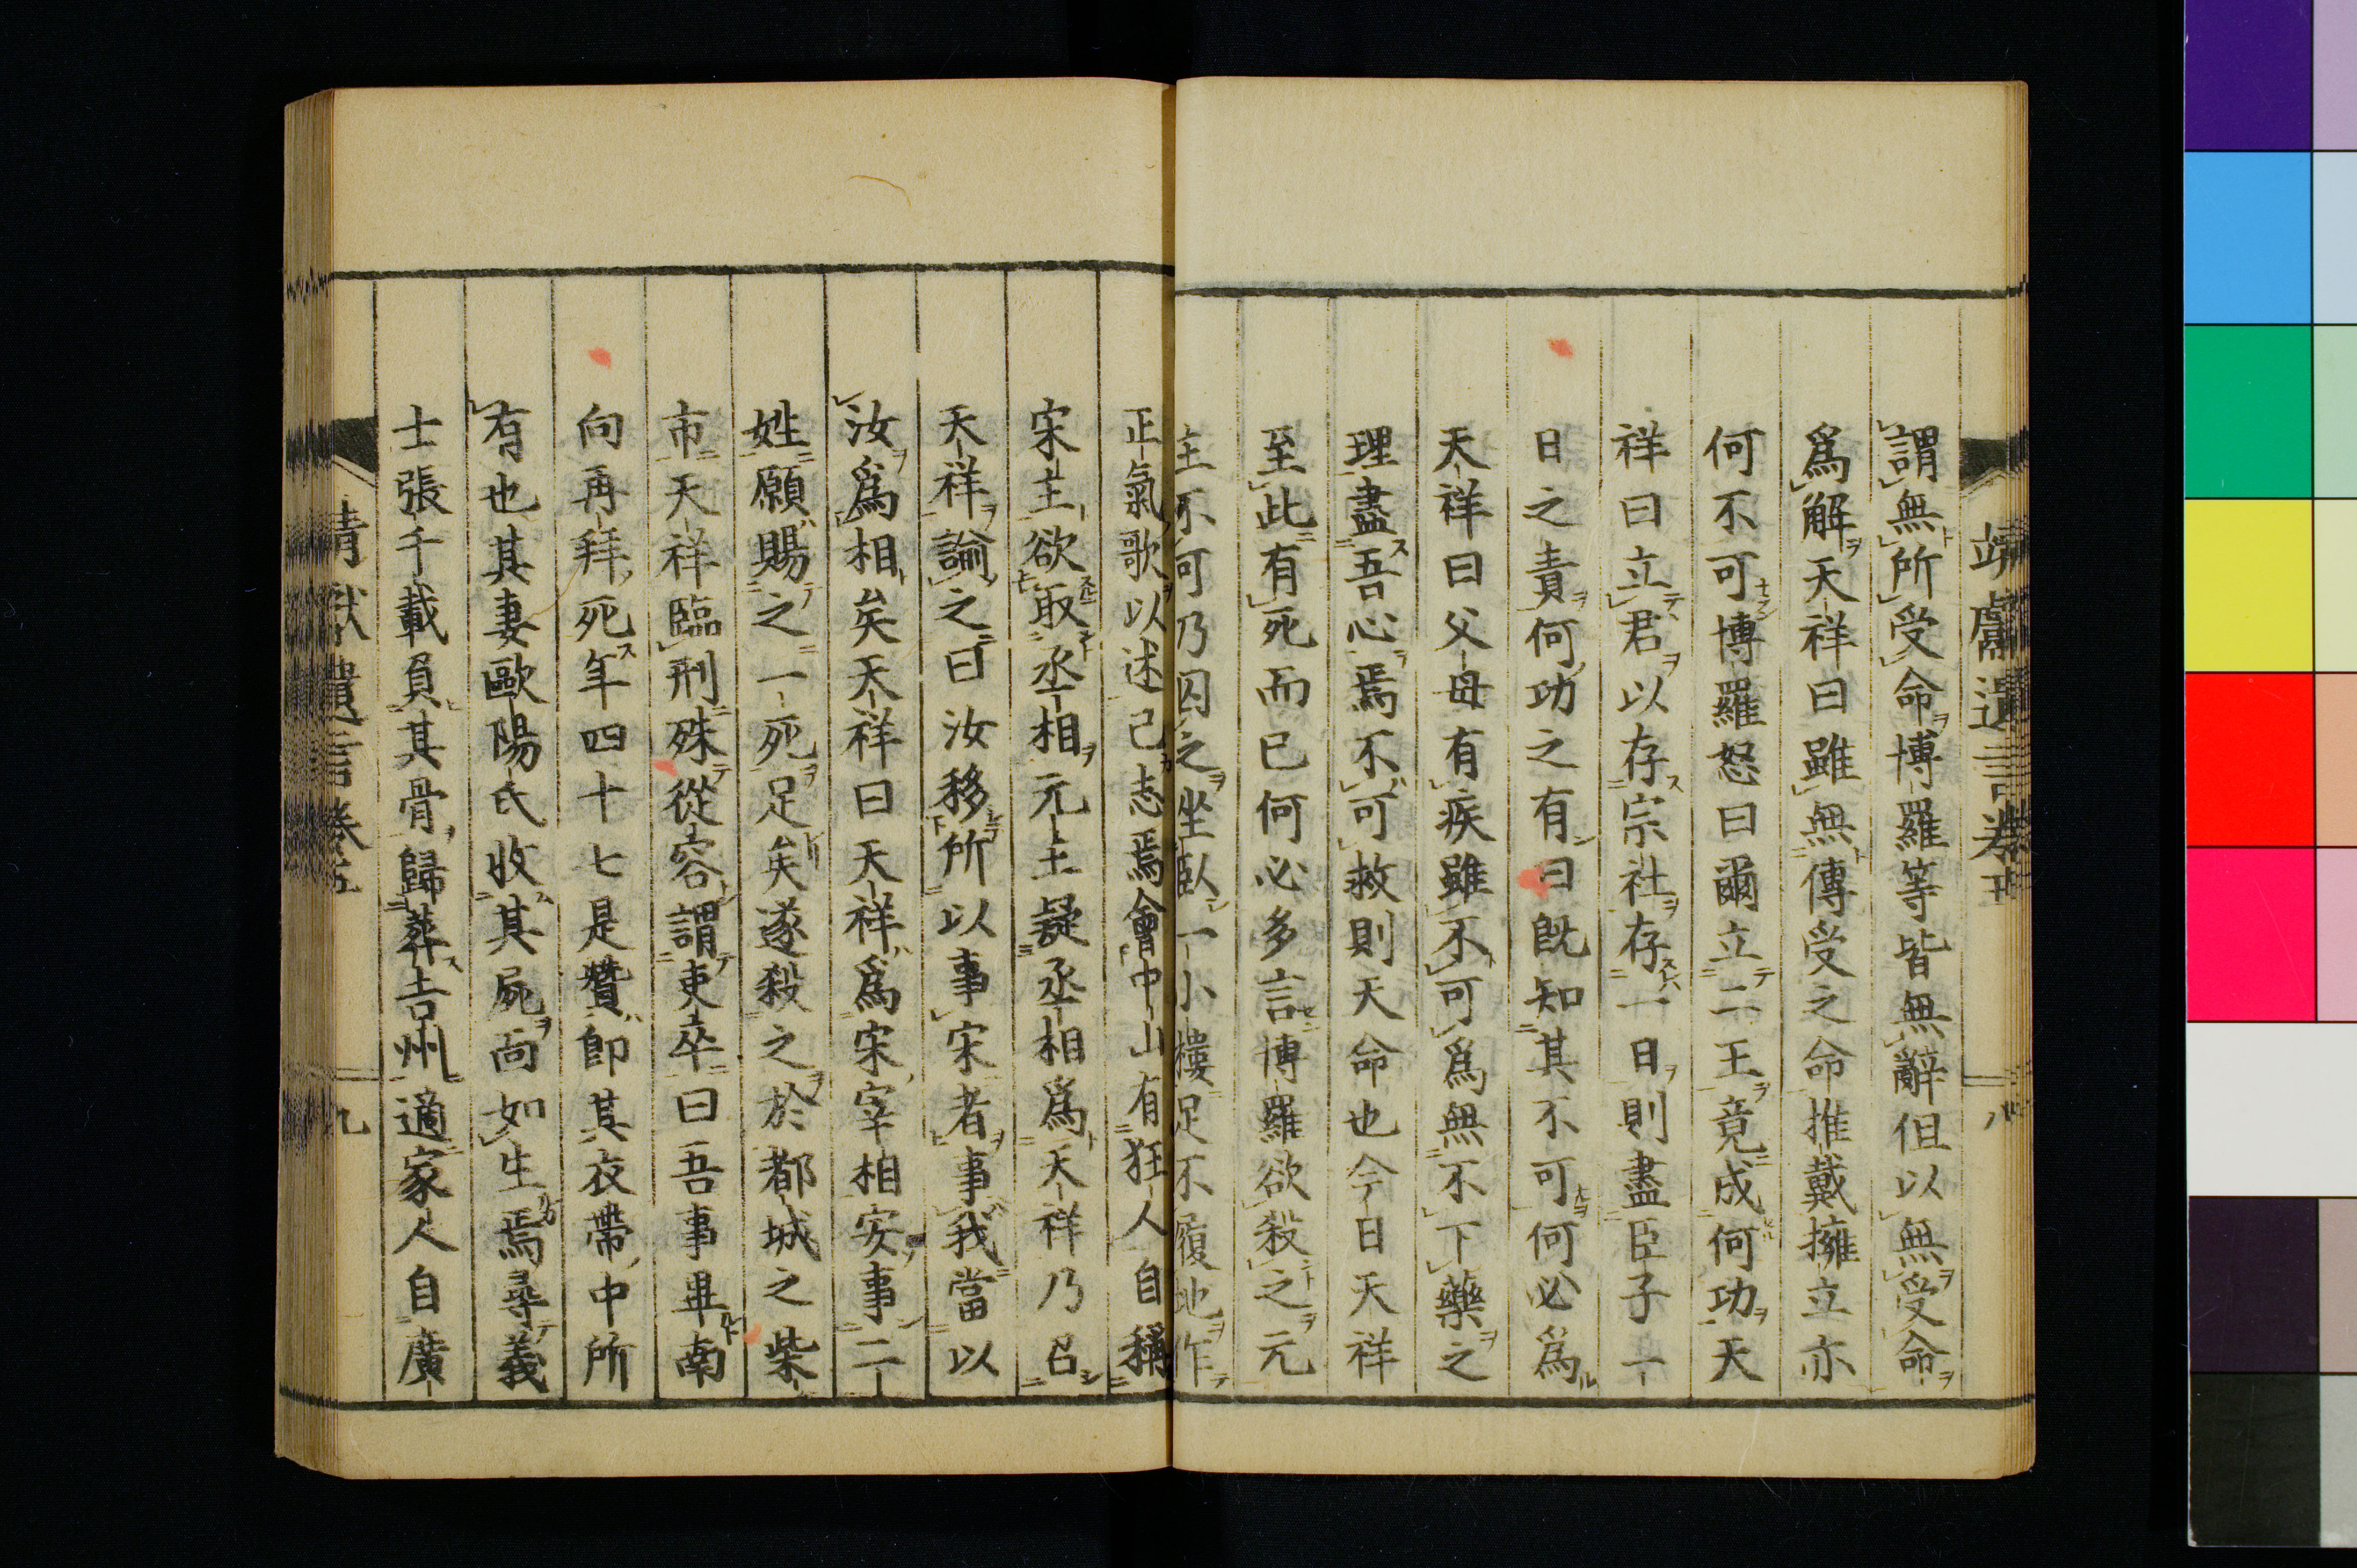 謂無所受命博羅等皆無辭但以無受命
爲解天祥曰雖無傳受之命推戴擁立亦
何不可博羅怒曰爾立二王竟成何功天
祥曰立君以存宗社存一日則盡臣子一
日之責何功之有曰既知其不可何必爲
天祥曰父母有疾雖不可爲無不下藥之
理盡吾心焉不可救則天命也今日天祥
至此有死而已何必多言博羅欲殺之元
主不可乃囚之坐臥一小樓足不履地作
正氣歌以述己志焉會中山有狂人自稱
宋主欲取丞相元主疑丞相爲天祥乃召
天祥諭之曰汝移所以事宋者事我當以
汝爲相矣天祥曰天祥爲宋宰相安事二
姓願賜之一死足矣遂殺之於都城之柴
市天祥臨刑殊從容謂吏卒曰吾事畢南
向再拜死年四十七是贊即其衣帶中所
有也其妻歐陽氏收其屍面如生焉尋義
士張千載負其骨歸葬吉州適家人自廣